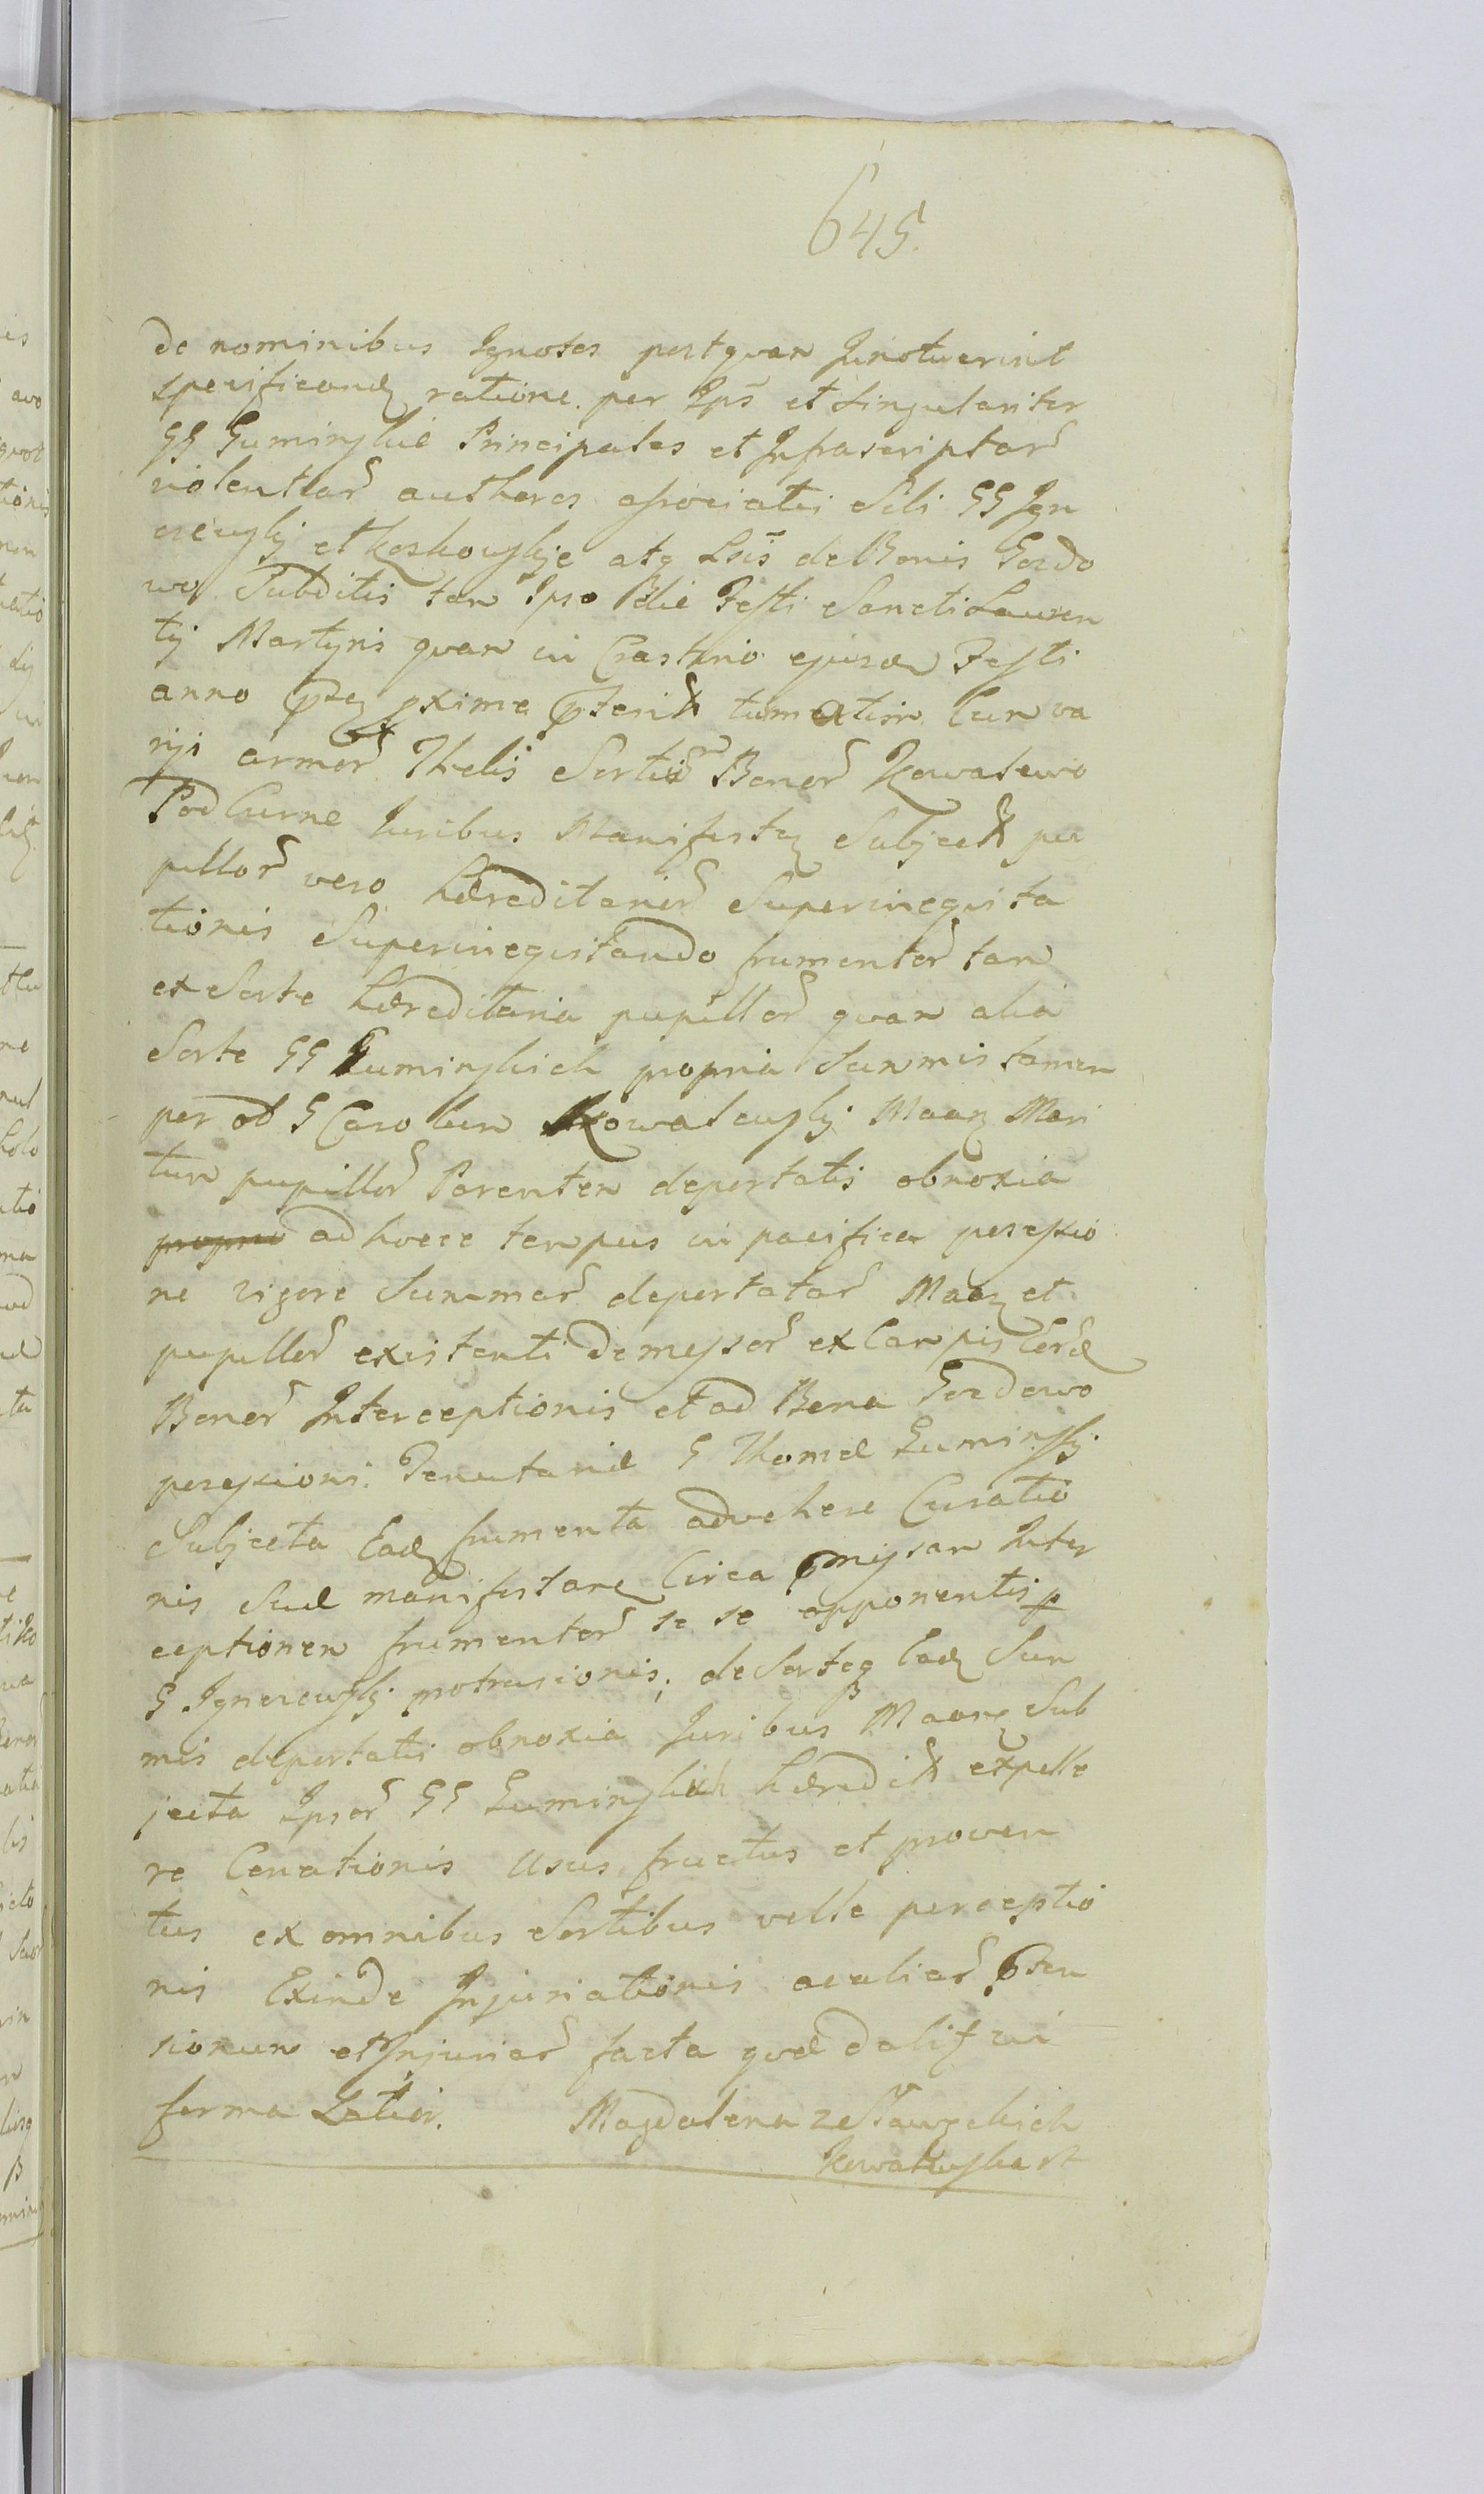 645.
de nominibus Ignotos postquam Innotuerint
specificand ratione per Ips et singulariter
GG Guminskie Principales et Infrascriptar
violentiar authores associatis Sibi GG Ign
erewskj et Koskowskje atq Lbis de Bonis Gozdo
wo Subditis tam Ipso die Festi Sancti Lauren
tij Martyris quam in Crastino ejusdem Festi
anno proxime tumatim cum va
rijs armor Thelis Sortis Bonor Kowalewo
Pod Curne Juribus Manifestan Subject pu
pillor vero hæreditarior Superinequita
tionis Superinequitando frumentor tam
ex Sorte hæreditaria pupillor quam alia
Sorte GG Guminskich propria Summis tamen
per ol G Carolum Kowalewskj Maan Mari
tum pupillor Parentem deportatis obnoxia
ad hocce tempus in pacifica possessio
ne vigore Summar deportatar Maan et
pupillor existenti demessor ex Campis Eord
Bonor Interceptionis et ad Bona Gozdowo
possessioni Tenutariæ G Thomæ Guminskj
Subjecta Ead frumenta advehere Curatio
nis Suæ manifestan Circa omissam Inter
ceptionem frumentor se se opponentis p
G Ignerewskj protrusionis; de Sorteq Ead Sum
mis deportatis obnoxia Juribus Maan Sub
jecta Ipsor GG Guminskich hæredit expelle
re Conationis Usus fructus et proven
tus ex omnibus Sortibus velle perceptio
nis Exinde Injuriationis aliar
sionum et Injuriar facta quæ dalif in
forma Latiori. Magdalena
Kowalewska